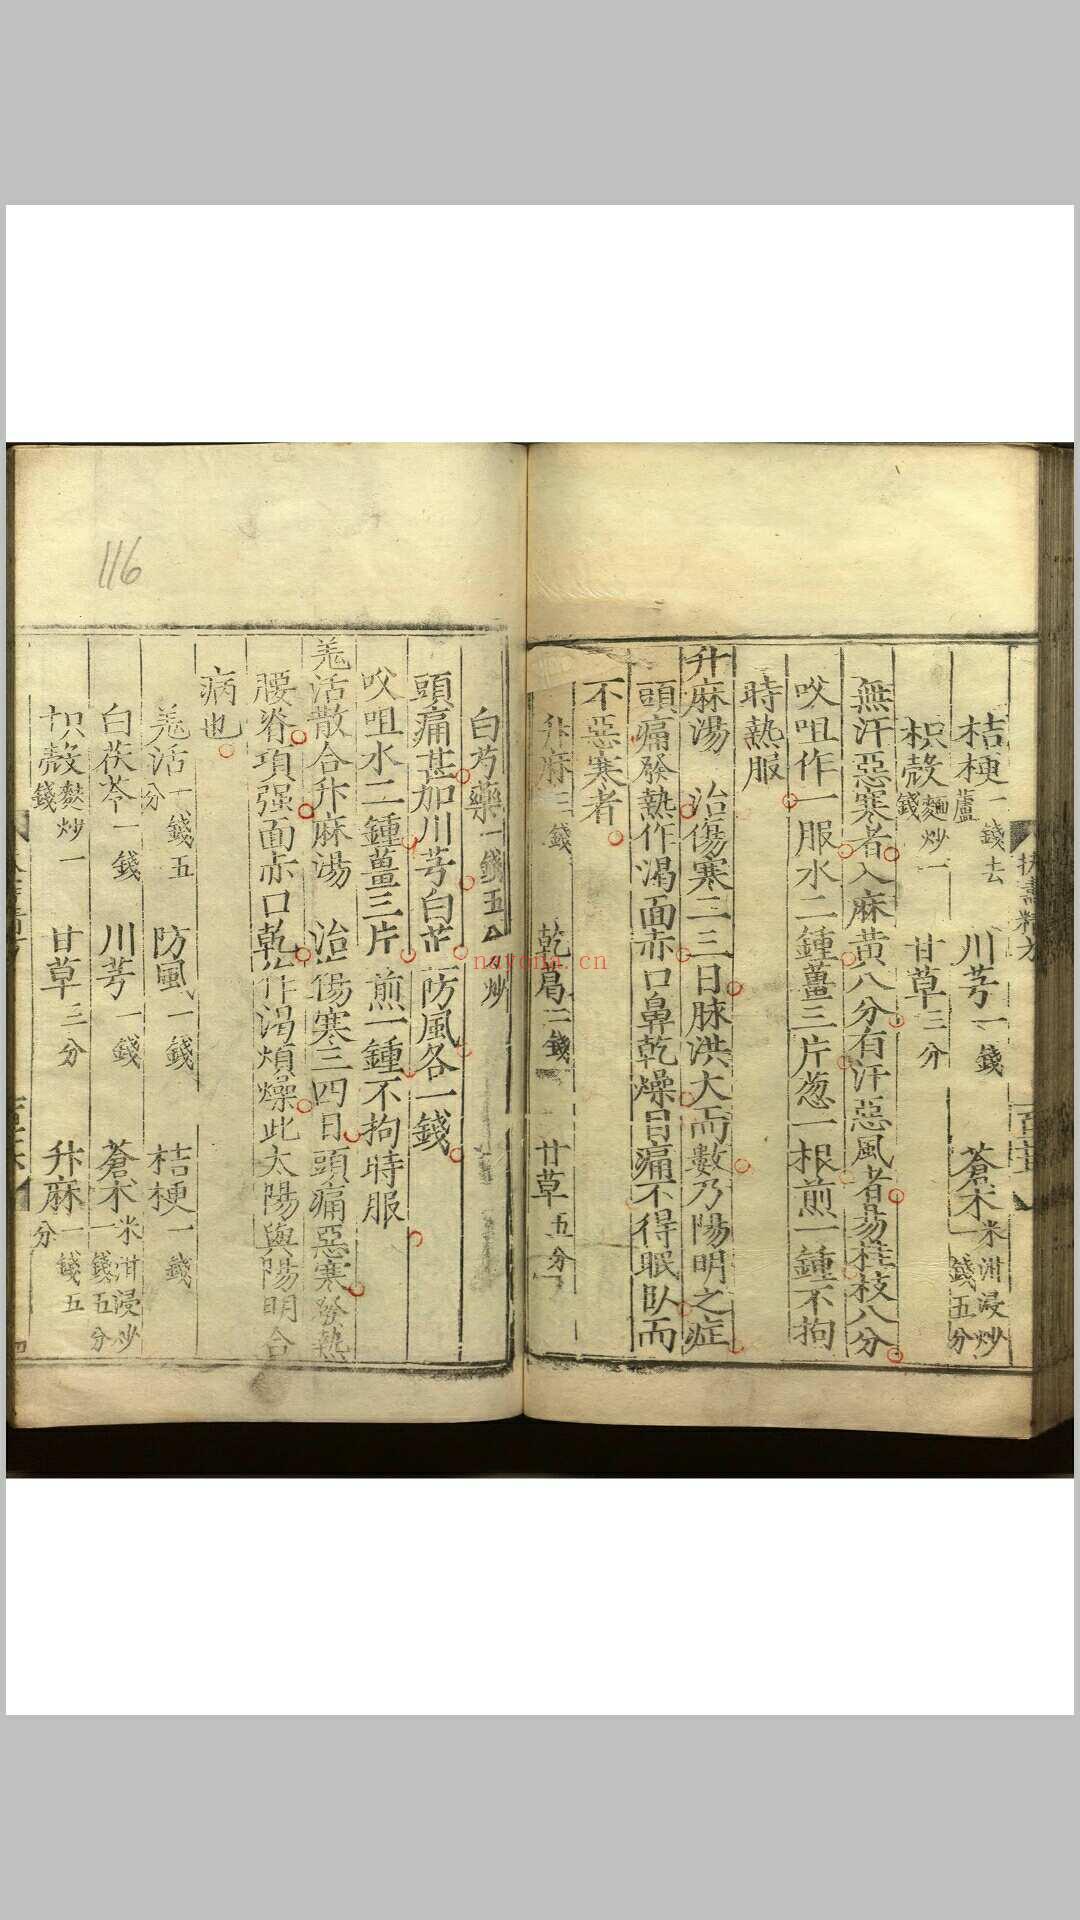 桔梗一錢去蘆 川芎一錢 蒼朮米泔浸炒一錢五分
枳殼麵炒一錢 甘草三分
無汗惡寒者入麻黃八分有汗惡風者昜桂枝八分
㕮咀作一服水二鍾薑三片葱一根煎一鍾不拘
時熱服
升麻湯 治傷寒二三日脉洪大而數乃陽明之症
頭痛發熱作渴面赤口鼻乾燥目痛不得眠臥而
不惡寒者
升麻三錢 乾葛二錢 甘草五分
白芍藥一錢五分炒
頭痛甚加川芎白芷防風各一錢
㕮咀水二鍾薑三片煎一鍾不拘時服
羗活散合升麻湯 治傷寒三四日頭痛惡寒發熱
腰脊項强面赤口乾作渴煩燥此太陽與陽明合
病也
羗活一錢五分 防風一錢 桔梗一錢
白茯苓一錢 川芎一錢 蒼朮米泔浸炒一錢五分
枳殼麩炒一錢 甘草三分 升麻一錢五分
116
nayona.cn